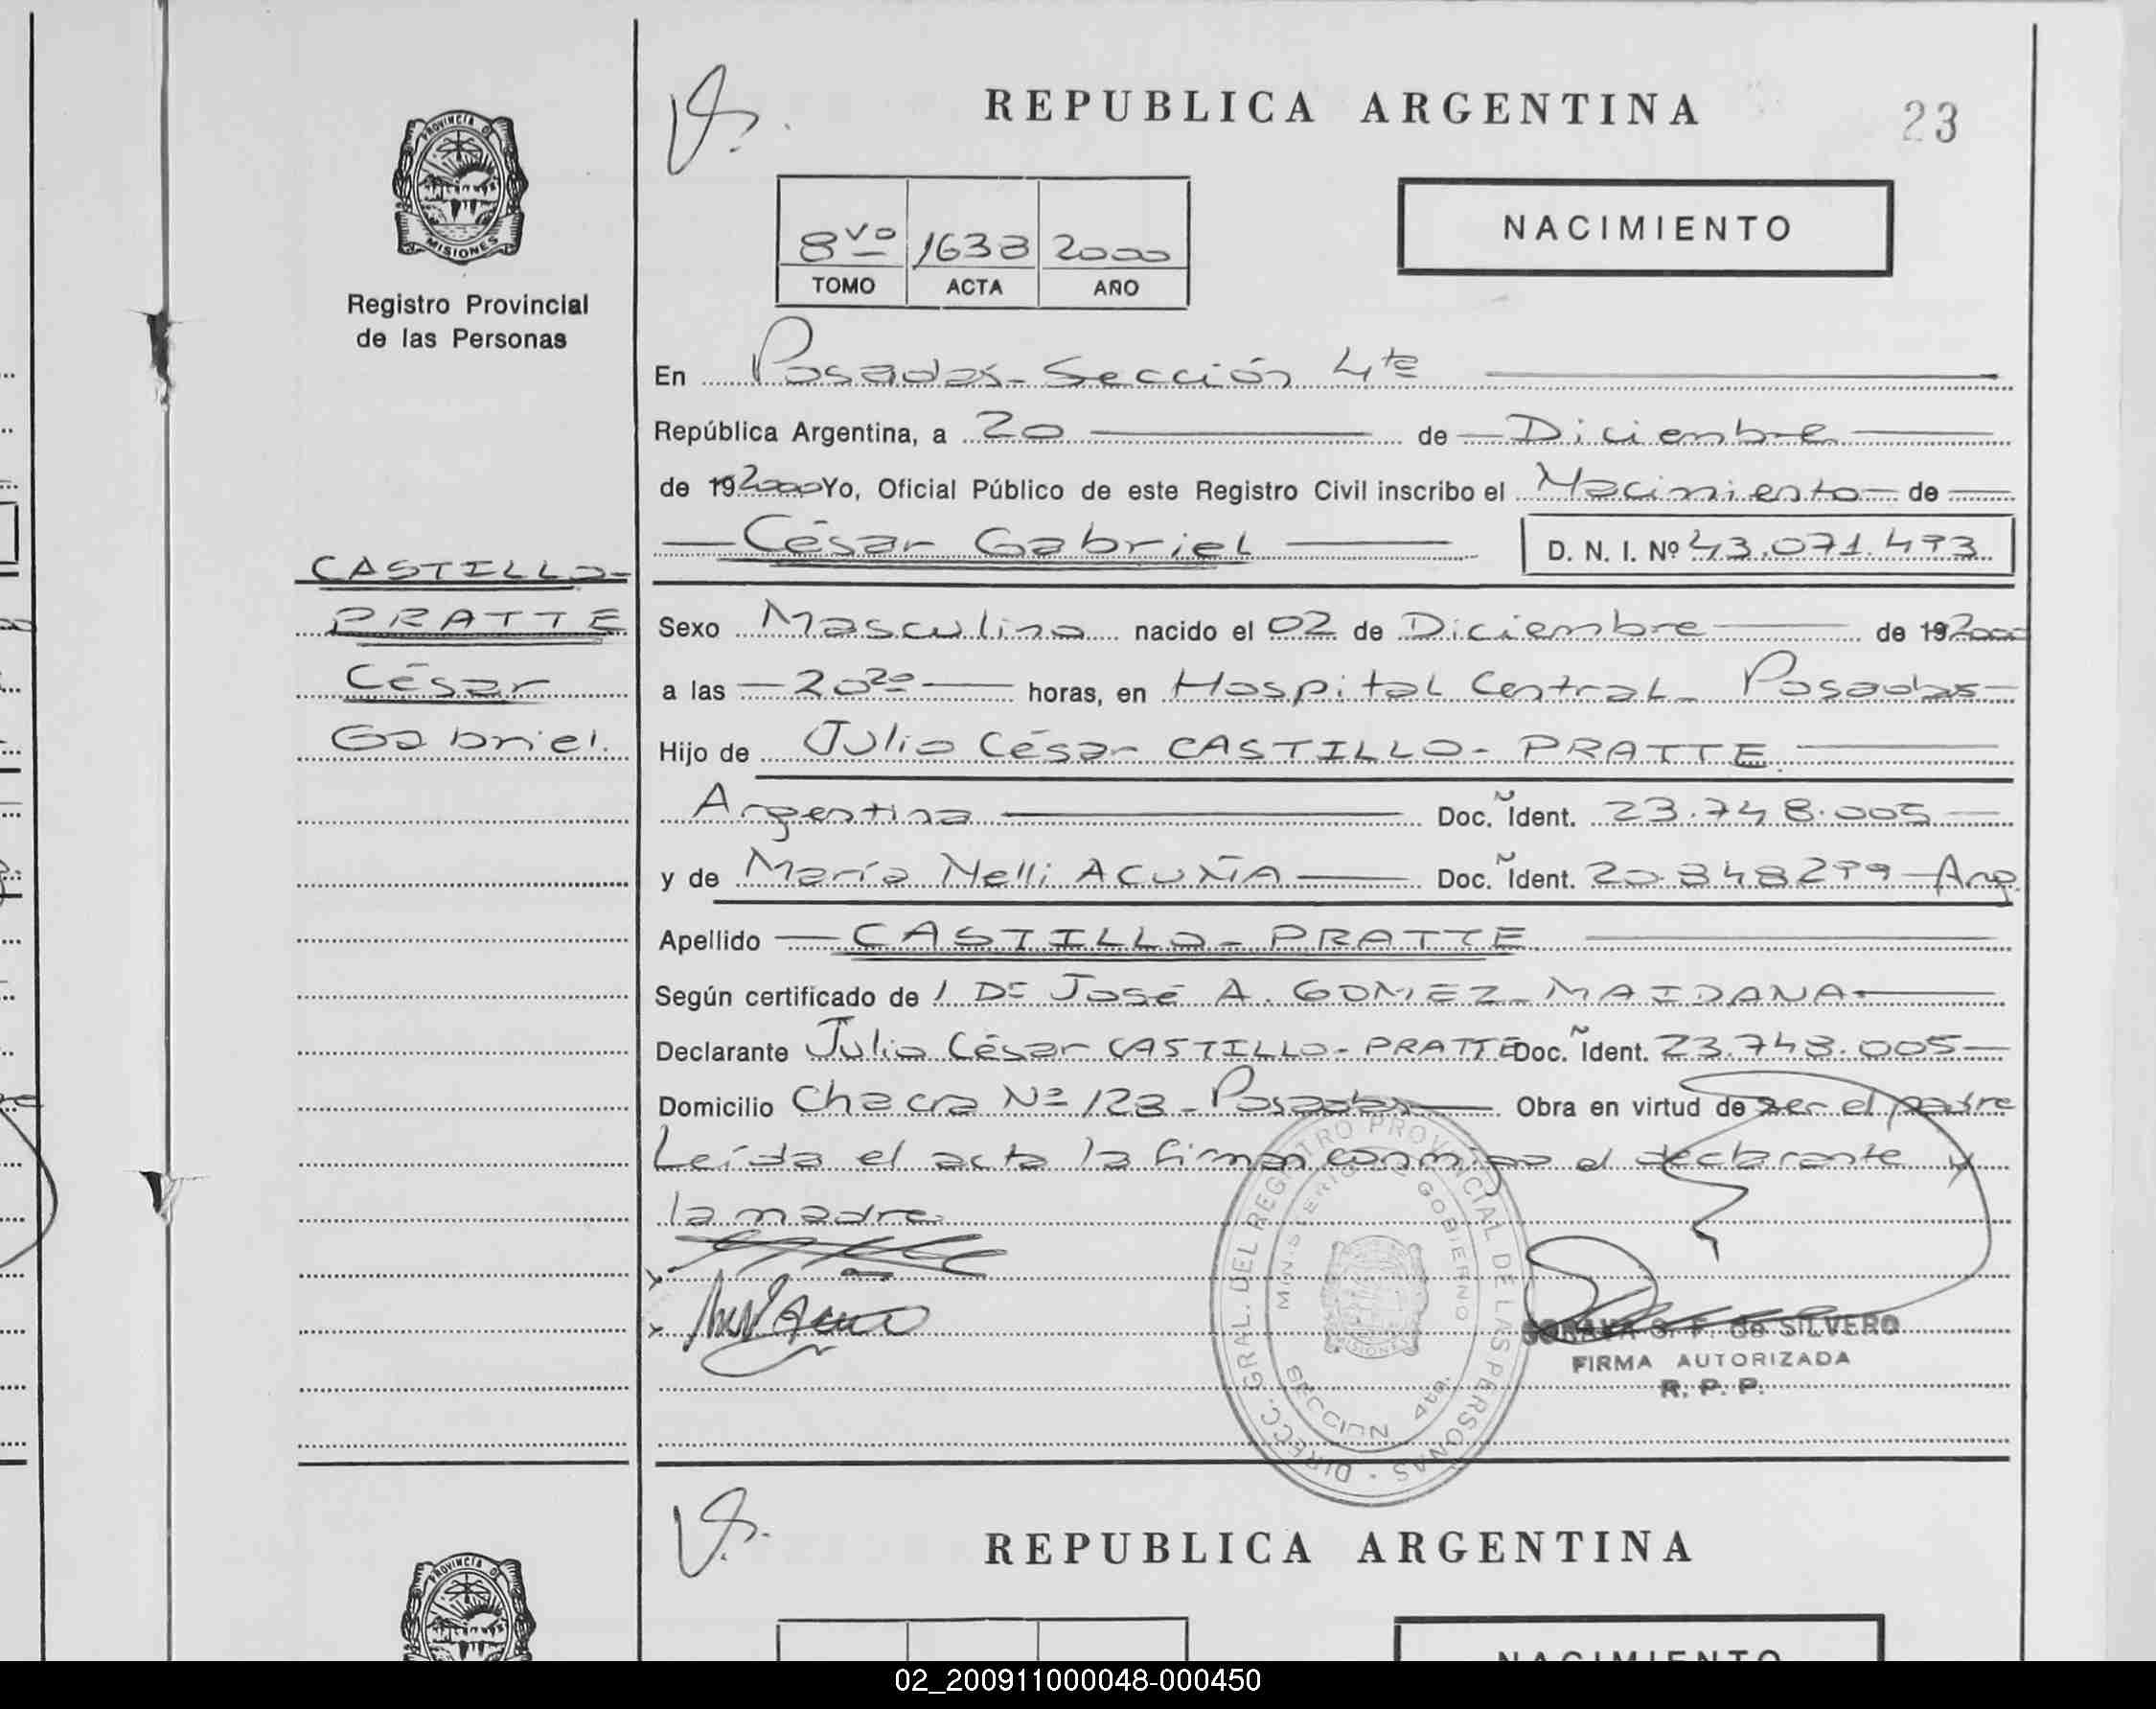 REPUBLICA ARGENTINA
23
PROVINCIA DE
MISIONES
Registro Provincial
de las Personas
NACIMIENTO
8vo 1638 2000
TOMO ACTA AÑO
En Posadas - Sección 4ta
República Argentina, a 20 de Diciembre
de 192000 Yo, Oficial Público de este Registro Civil inscribo el Nacimiento de
César Gabriel D. N. I. Nº 43.071.493
CASTILLO-
PRATTE
César
Gabriel.
Sexo Masculino nacido el 02 de Diciembre de 192000
a las 20 20 horas, en Hospital Central - Posadas
Hijo de Julio César CASTILLO - PRATTE
Argentina Doc. Ident. 23.748.005
y de María Nelli ACUÑA Doc. Ident. 20.848299 Arg.
Apellido CASTILLO - PRATTE
Según certificado de / Dr José A. GOMEZ - MAIDANA
Declarante Julio César CASTILLO - PRATTE Doc. Ident. 23.748.005
Domicilio Chacra Nº 123 - Posadas Obra en virtud de ser el padre
Leída el acta la firman conmigo el declarante y
la madre.
DIRECC. GRAL. DEL REGISTRO PROVINCIAL DE LAS PERSONAS
MINISTERIO DE GOBIERNO
SECCION 4ta.
SORAYA G. F. de SILVERO
FIRMA AUTORIZADA
R. P. P.
REPUBLICA ARGENTINA
PROVINCIA DE
NACIMIENTO
02_200911000048-000450